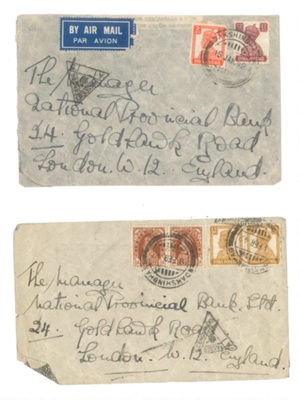 BY AIR MAIL
PAR AVION
The Manager
National Provincial Bank
24. Goldhawk Road
London. W. 12. England.
The Manager
National Provincial Bank. Ltd.
24. Goldhawk Road
London. W. 12. England.